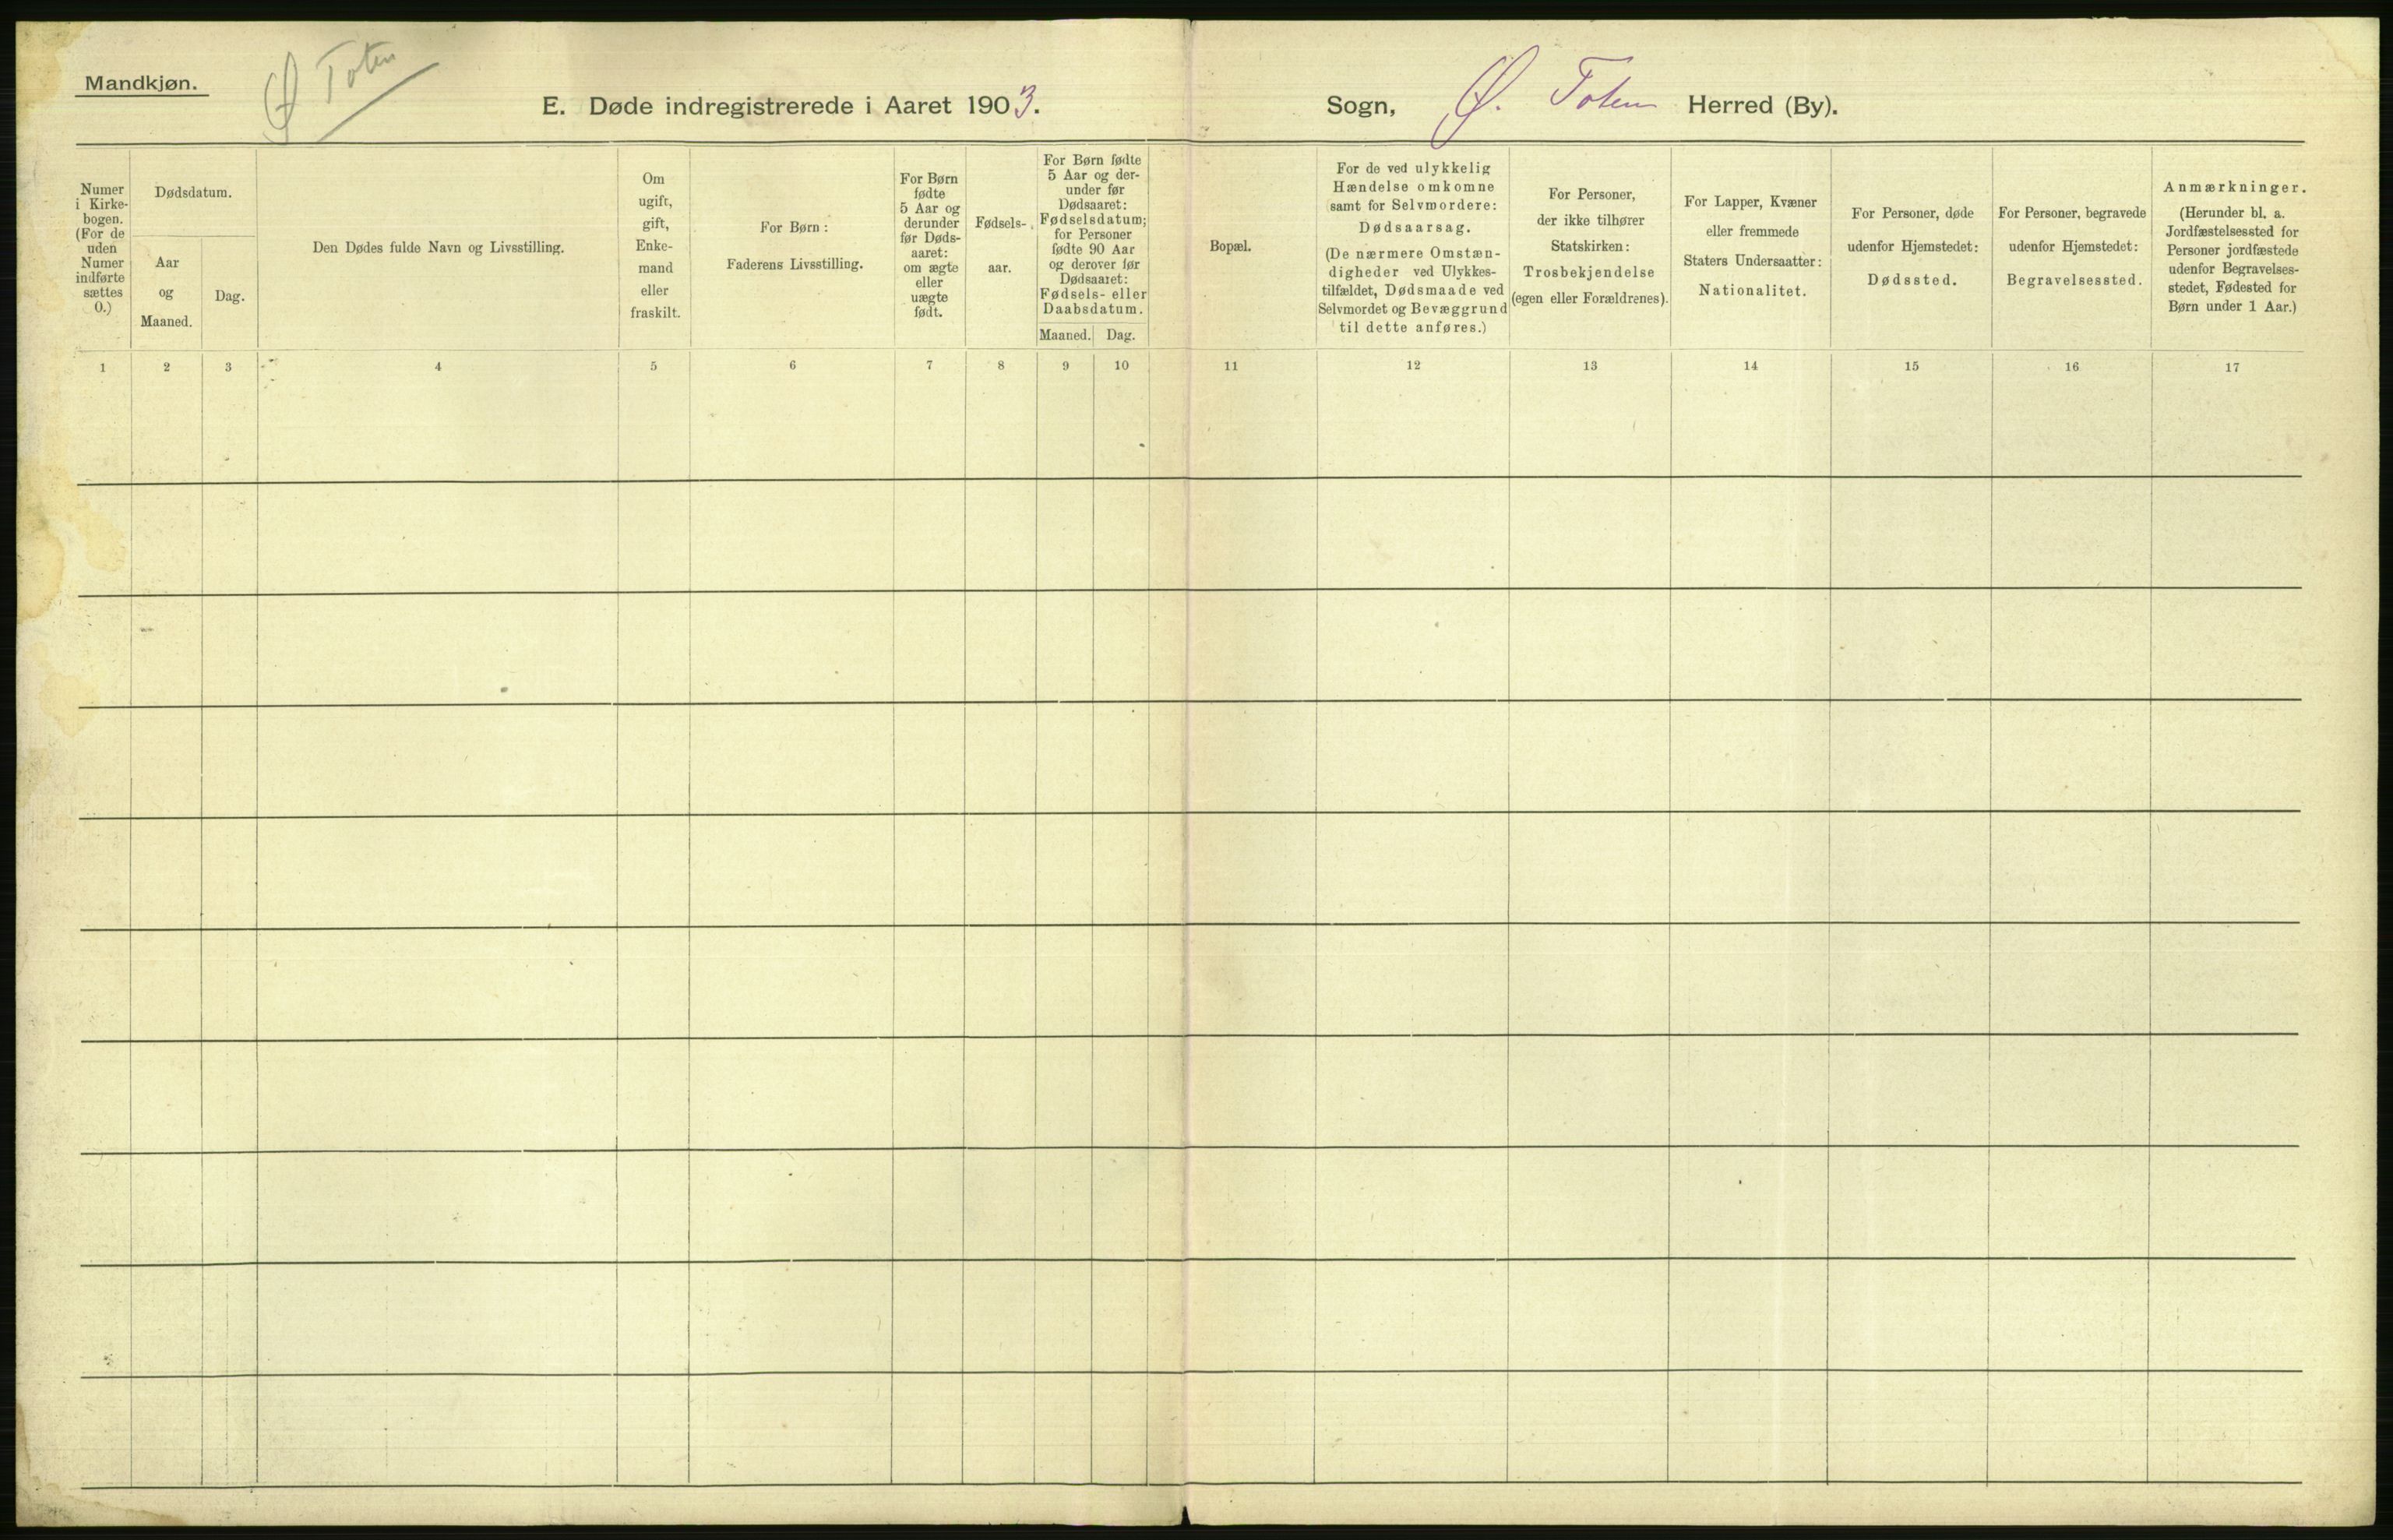 Mandkjøn.
Ø Toten
E. Døde indregistrerede i Aaret 1903.
Sogn, Ø. Toten Herred (By).
Numer
i Kirke-
bogen.
(For de
uden
Numer
indførte
sættes
0.)
Dødsdatum.
Aar
og
Maaned.
Dag.
Den Dødes fulde Navn og Livsstilling.
Om
ugift,
gift,
Enke-
mand
eller
fraskilt.
For Børn:
Faderens Livsstilling.
For Børn
fødte
5 Aar og
derunder
før Døds-
aaret:
om ægte
eller
uægte
født.
Fødsels-
aar.
For Børn fødte
5 Aar og der-
under før
Dødsaaret:
Fødselsdatum;
for Personer
fødte 90 Aar
og derover før
Dødsaaret:
Fødsels- eller
Daabsdatum.
Maaned.
Dag.
Bopæl.
For de ved ulykkelig
Hændelse omkomne
samt for Selvmordere:
Dødsaarsag.
(De nærmere Omstæn-
digheder ved Ulykkes-
tilfældet, Dødsmaade ved
Selvmordet og Bevæggrund
til dette anføres.)
For Personer,
der ikke tilhører
Statskirken:
Trosbekjendelse
(egen eller Forældrenes).
For Lapper, Kvæner
eller fremmede
Staters Undersaatter:
Nationalitet.
For Personer, døde
udenfor Hjemstedet:
Dødssted.
For Personer, begravede
udenfor Hjemstedet:
Begravelsessted.
Anmærkninger.
(Herunder bl. a.
Jordfæstelsessted for
Personer jordfæstede
udenfor Begravelses-
stedet, Fødested for
Børn under 1 Aar.)
1 2 3 4 5 6 7 8 9 10 11 12 13 14 15 16 17